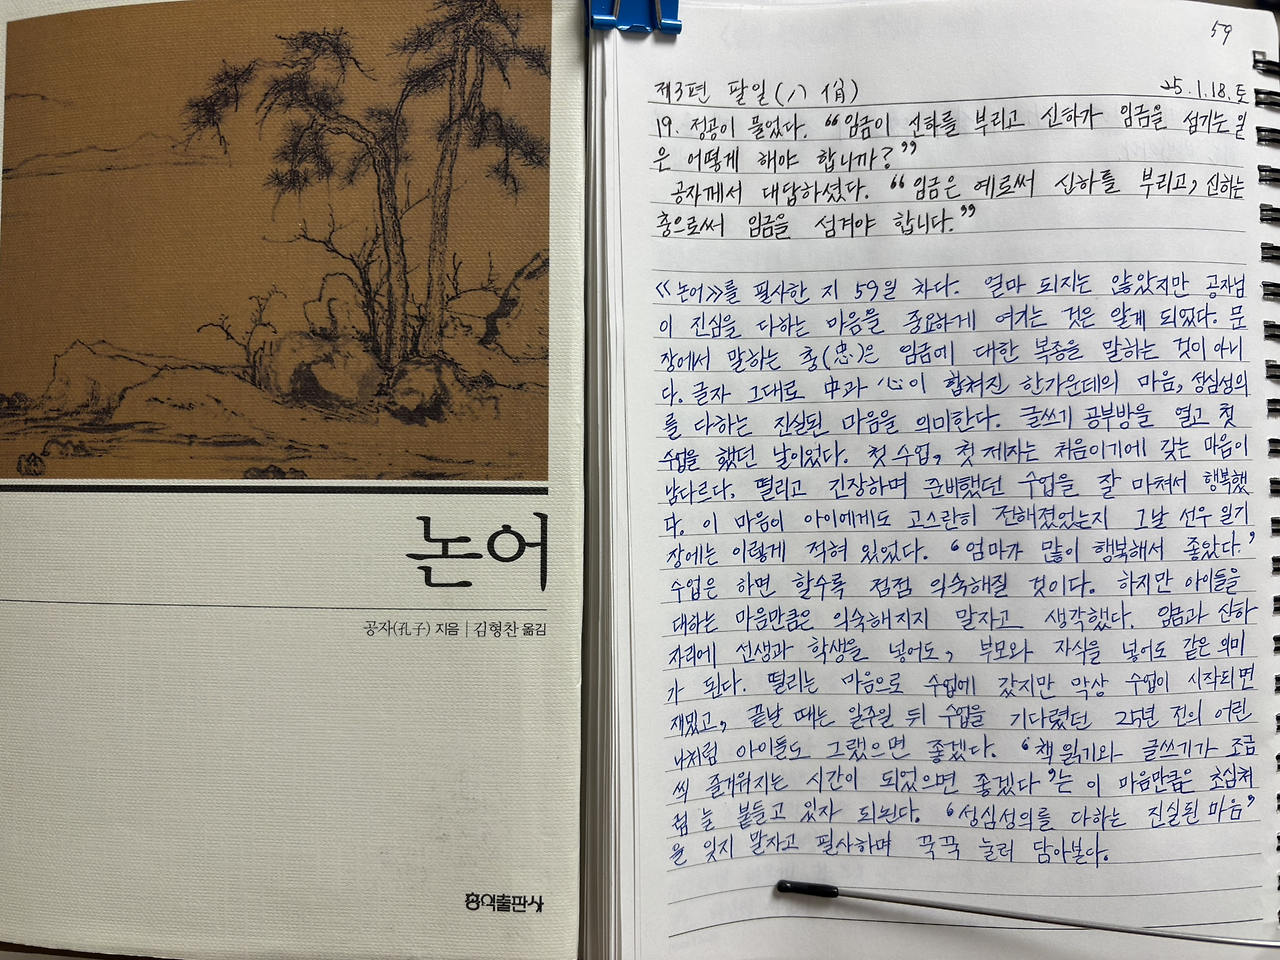 논어
공자(孔子) 지음 | 김형찬 옮김
홍익출판사
59
제3편 팔일(八佾) 25.1.18.토
19. 정공이 물었다. “임금이 신하를 부리고 신하가 임금을 섬기는 일
은 어떻게 해야 합니까?”
공자께서 대답하셨다. “임금은 예로써 신하를 부리고, 신하는
충으로써 임금을 섬겨야 합니다.”
《논어》를 필사한 지 59일 차다. 얼마 되지는 않았지만 공자님
이 진심을 다하는 마음을 중요하게 여기는 것은 알게 되었다. 문
장에서 말하는 충(忠)은 임금에 대한 복종을 말하는 것이 아니
다. 글자 그대로 中과 心이 합쳐진 한가운데의 마음, 성심성의
를 다하는 진실된 마음을 의미한다. 글쓰기 공부방을 열고 첫
수업을 했던 날이었다. 첫 수업, 첫 제자는 처음이기에 갖는 마음이
남다르다. 떨리고 긴장하며 준비했던 수업을 잘 마쳐서 행복했
다. 이 마음이 아이에게도 고스란히 전해졌었는지 그날 선우 일기
장에는 이렇게 적혀 있었다. ‘엄마가 많이 행복해서 좋았다.’
수업은 하면 할수록 점점 익숙해질 것이다. 하지만 아이들을
대하는 마음만큼은 익숙해지지 말자고 생각했다. 임금과 신하
자리에 선생과 학생을 넣어도, 부모와 자식을 넣어도 같은 의미
가 된다. 떨리는 마음으로 수업에 갔지만 막상 수업이 시작되면
재밌고, 끝날 때는 일주일 뒤 수업을 기다렸던 25년 전의 어린
나처럼 아이들도 그랬으면 좋겠다. ‘책 읽기와 글쓰기가 조금
씩 즐거워지는 시간이 되었으면 좋겠다’는 이 마음만큼은 초심처
럼 늘 붙들고 있자 되뇐다. ‘성심성의를 다하는 진실된 마음’
을 잊지 말자고 필사하며 꾹꾹 눌러 담아본다.